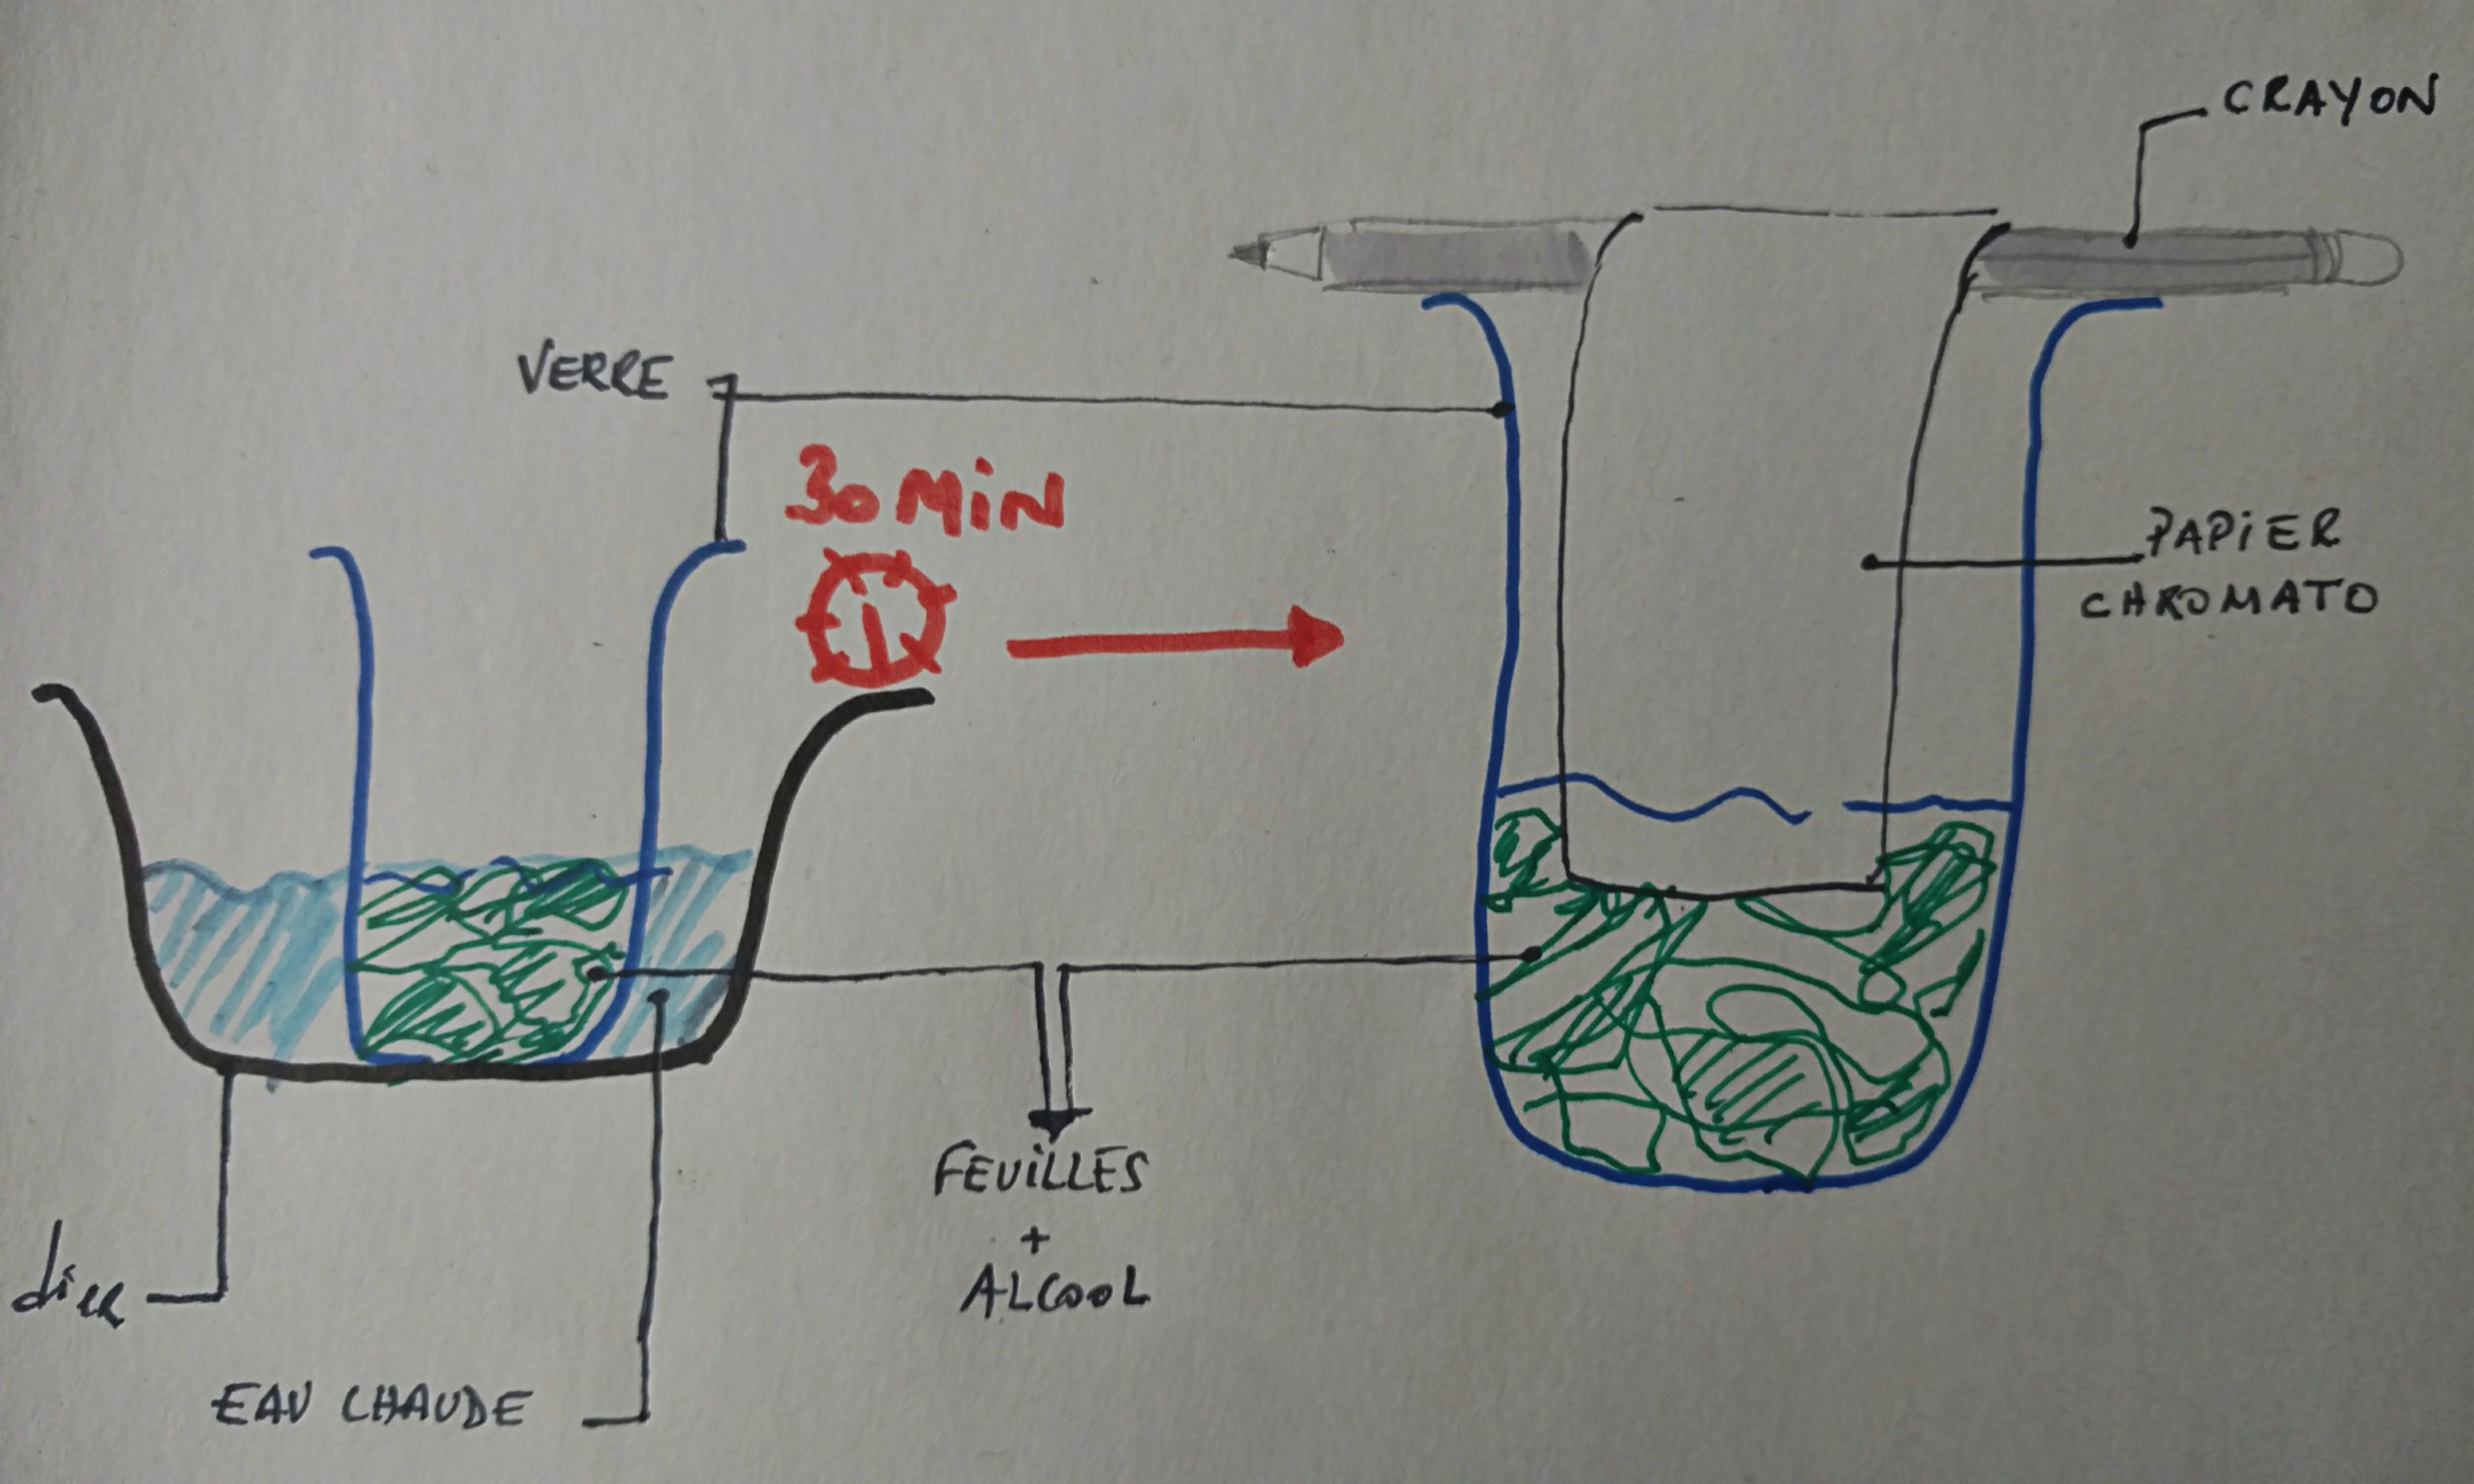 CRAYON
VERRE
30 MiN
PAPiER
CHROMATO
FEUiLLES
+
ALCOOL
EAU CHAUDE